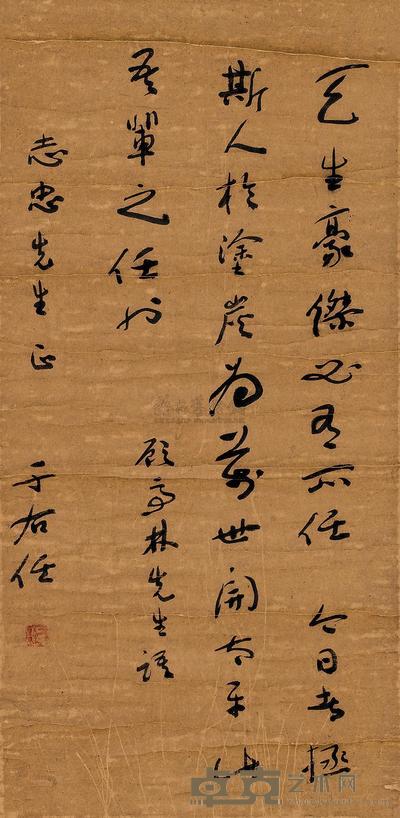 天生豪傑必有所任 今日者拯
斯人於塗炭為萬世開太平此
吾輩之任也
顧亭林先生語
志忠先生正
于右任
卓克艺术网